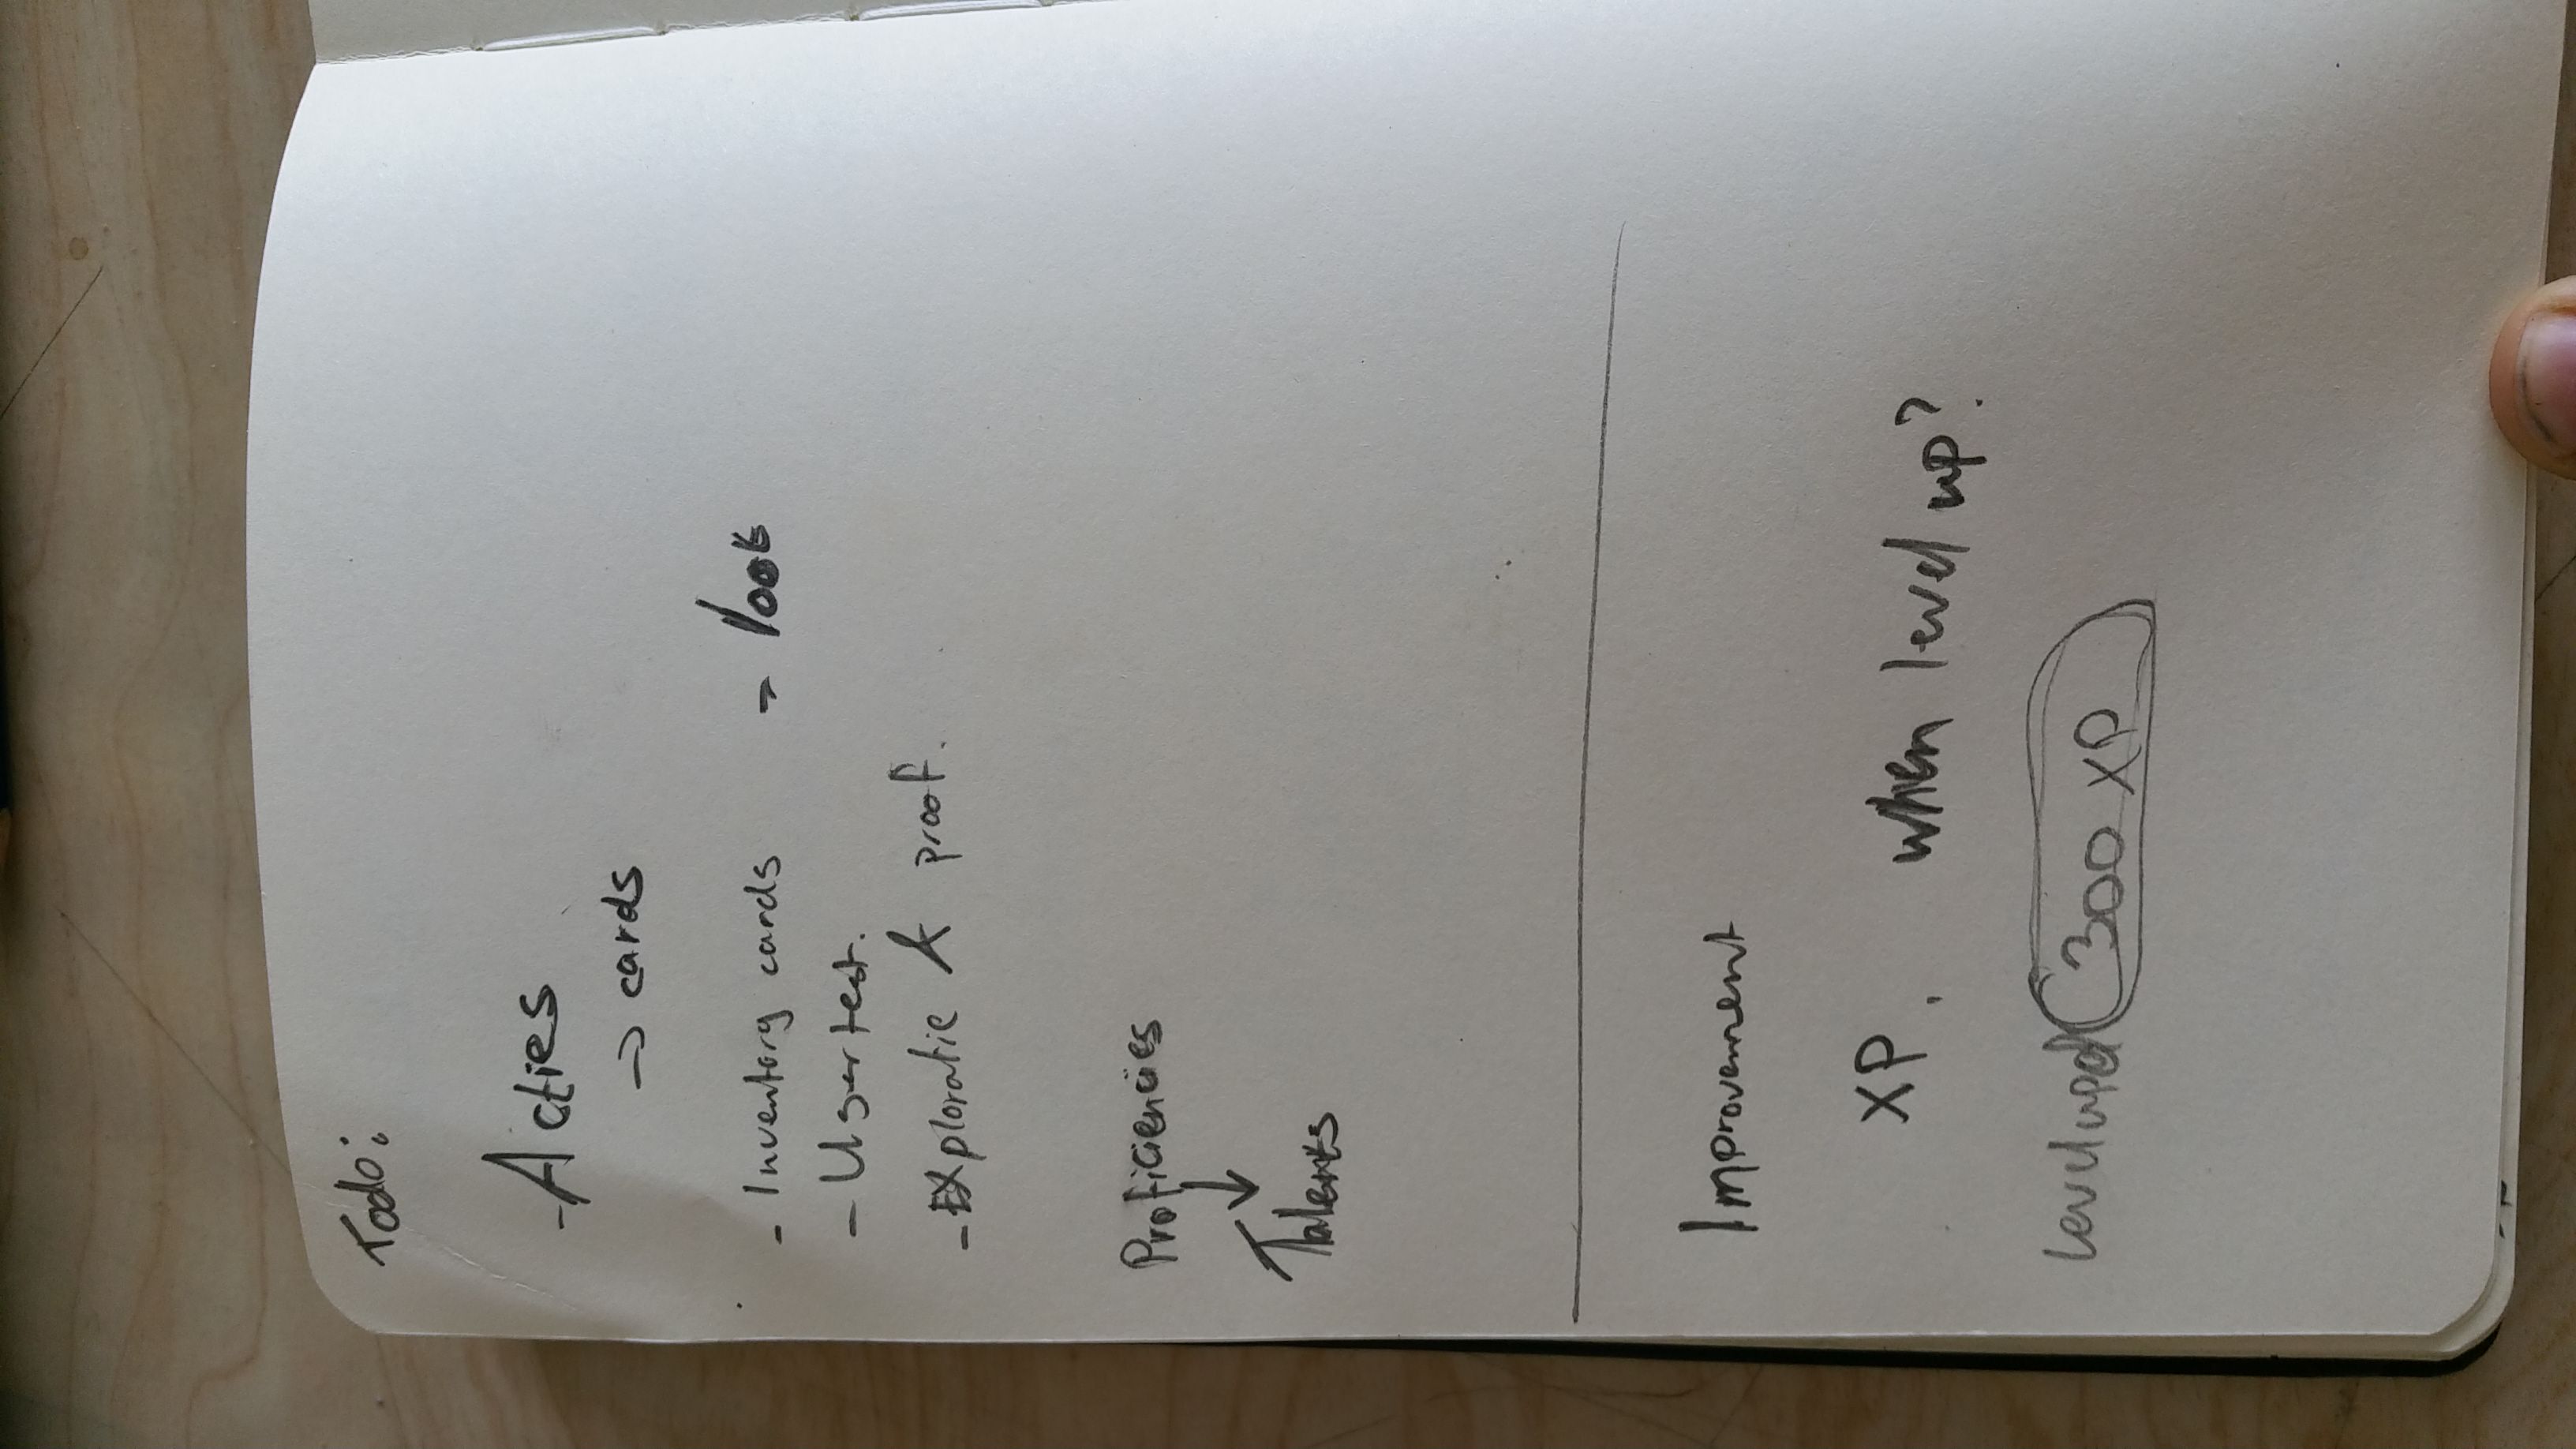 Todo:
- Acties
→ cards
- Inventory cards = loot
- Usertest.
- Exploratie A proof.
Proficiencies
↓
Talents
Improvement
XP. when level up?
300 XP